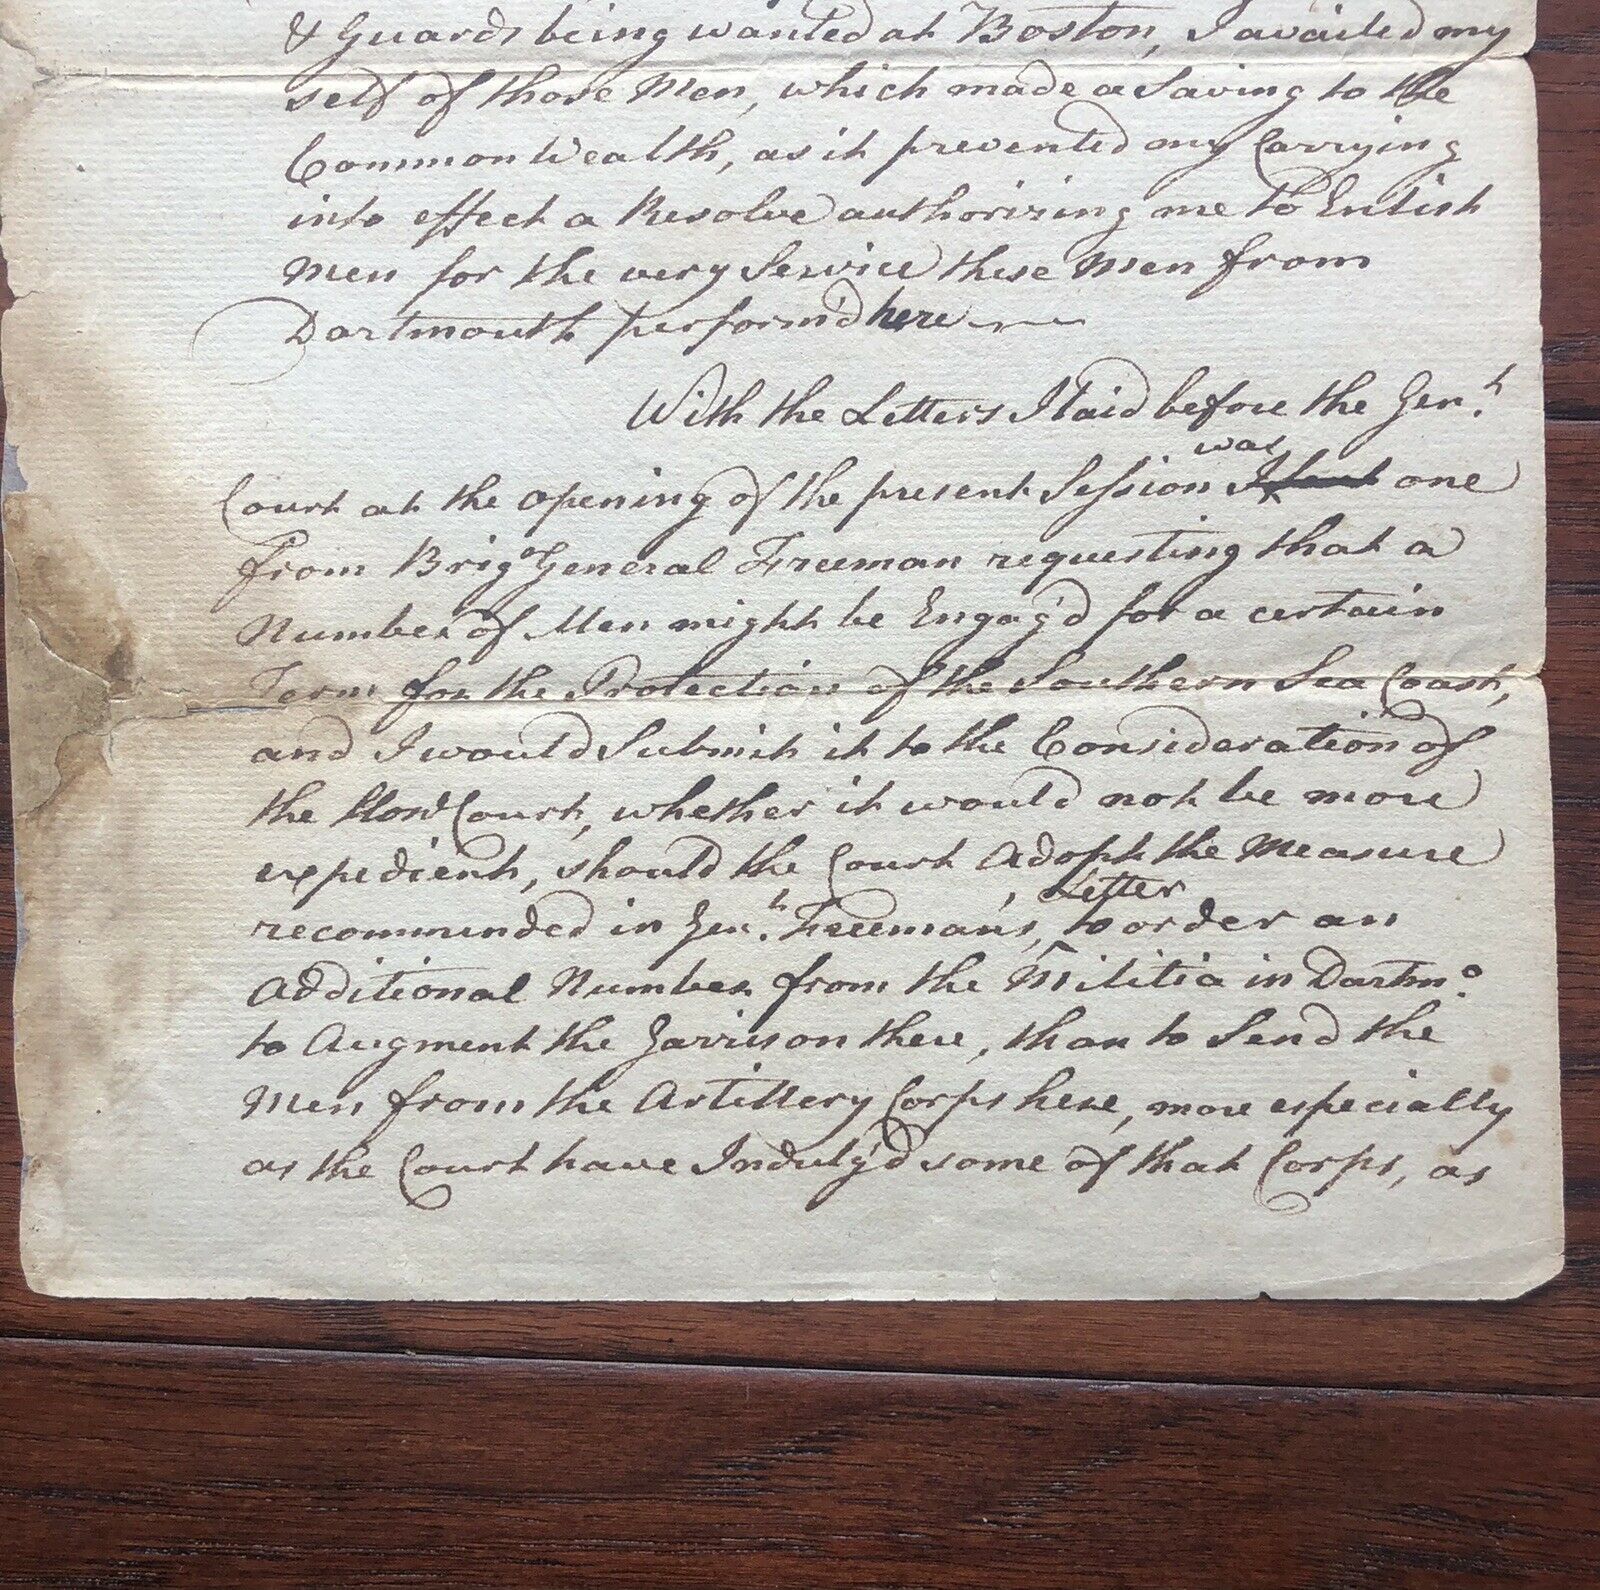 & Guards being wanted at Boston, I availed my
self of those Men, which made a Saving to the
Common Wealth, as it prevented my Carrying
into effect a Resolve authorizing me to Enlist
Men for the very Service these Men from
Dartmouth perform'd here
With the Letters I laid before the Genl.
Court at the opening of the present Session was I sent one
from Brigr General Freeman requesting that a
Number of Men might be Engag'd for a certain
Term for the Protection of the Southern Sea Coast,
and I would Submit it to the Consideration of
the Honl Court, whether it would not be more
expedient, should the Court Adopt the Measure
recommended in Genl. Freeman's, Letter to order an
Additional Number from the Militia in Dartmo.
to Augment the Garrison there, than to Send the
Men from the Artillery Corps here, more especially
as the Court have Indulg'd some of that Corps, as